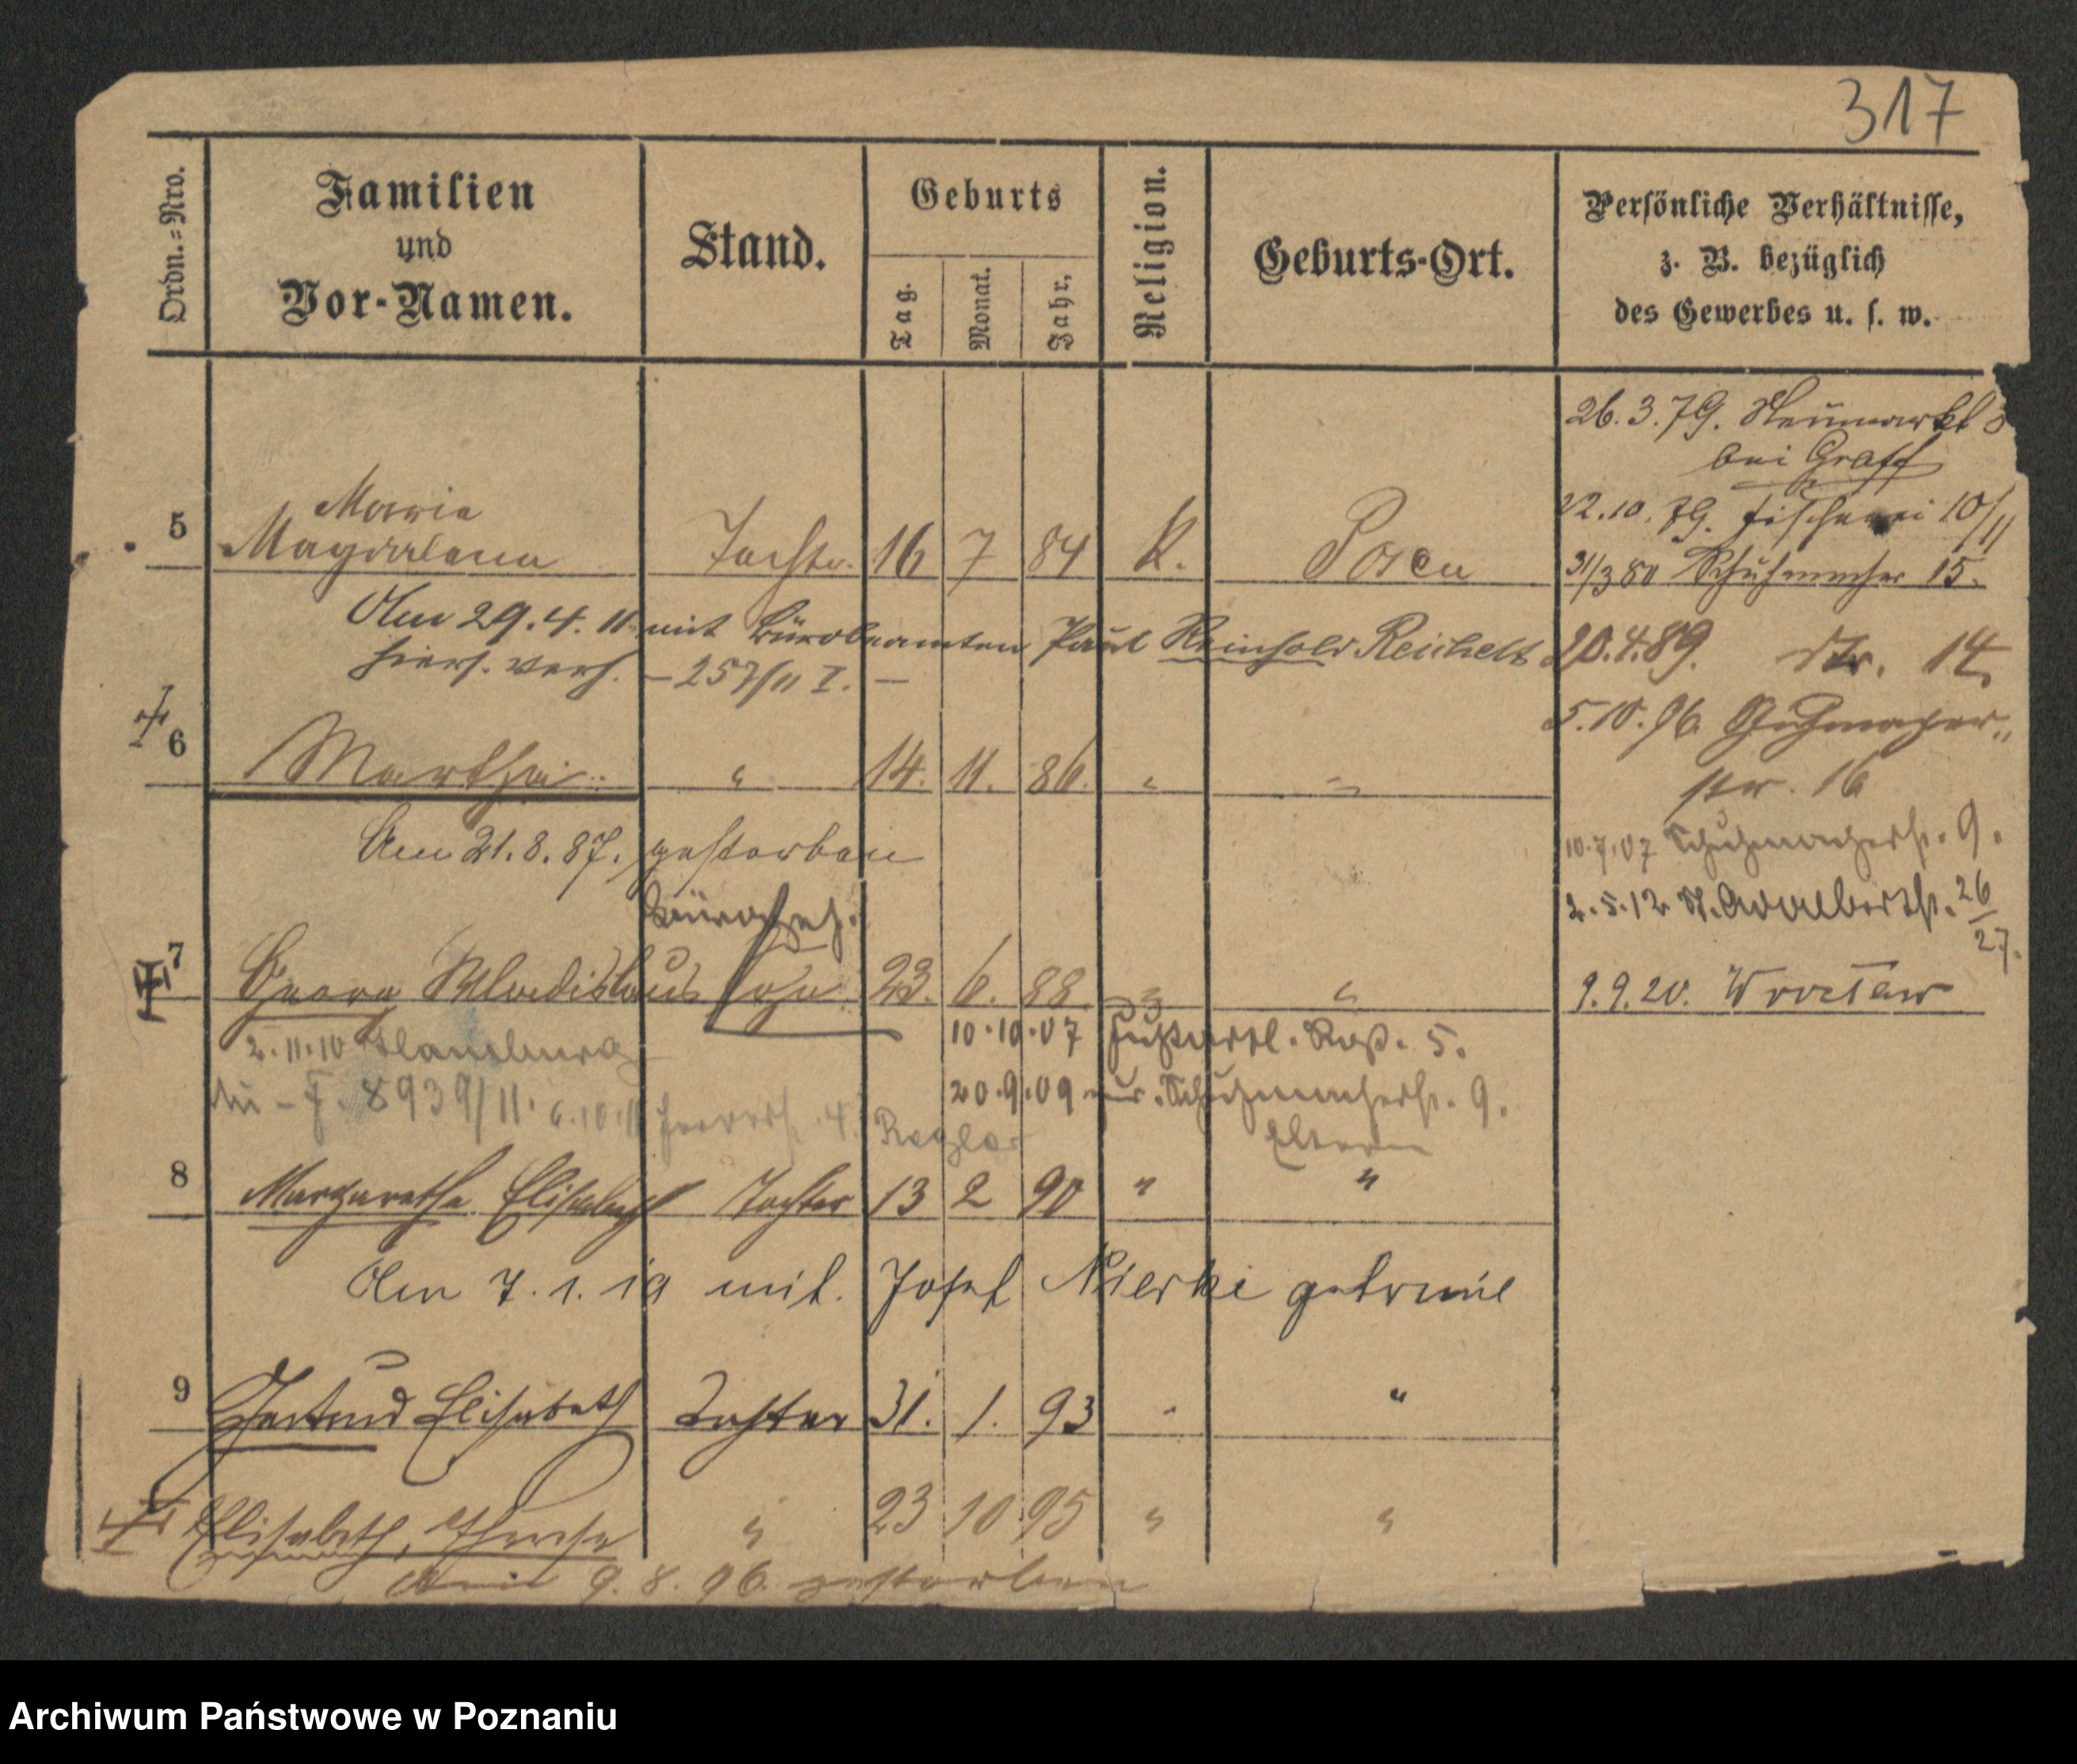 317
Ordn.=Nro.
Familien
und
Vor-Namen.
Stand.
Geburts
Tag.
Monat.
Jahr.
Religion.
Geburts-Ort.
Persönliche Verhältnisse,
z. B. bezüglich
des Gewerbes u. s. w.
26.3.79. Neumarkt
bei Graff
22.10.79. Fischerei 10/11
31/3 80 Schuhmacher 15.
20.4.89. Str. 14.
5.10.96. Schuhmacher
str. 16
10.7.07 Schuhmacherstr. 9.
2.5.12 St. Adalbertstr. 26/27.
9.9.20. Wrocław
Maria
5 Magdalena Tochter. 16 7 84 K. Posen
Am 29.4.11 mit Bürobeamten Paul Reinhold Reichelt
hiers. verh. – 257/11 I. –
6 Martha " 14. 11. 86. " "
Am 21.8.87. gestorben
Bürogeh.
7 Georg Wladislaus Sohn 23. 6. 88 " "
10.10.07 Fußartl. Rgt. 5.
2.11.10 Hamburg
20.9.09 zur. Schuhmacherstr. 9.
8939/11. 6.10.11 4. Eltern
8 Margarethe Elisabeth Tochter 13 2 90 " "
Am 7.1.19 mit Josef Mierke getraut
9 Gertrud Elisabeth Tochter 31. 1. 93 " "
Elisabeth, Therese " 23 10 95 " "
Am 9.8.96. gestorben
Archiwum Państwowe w Poznaniu